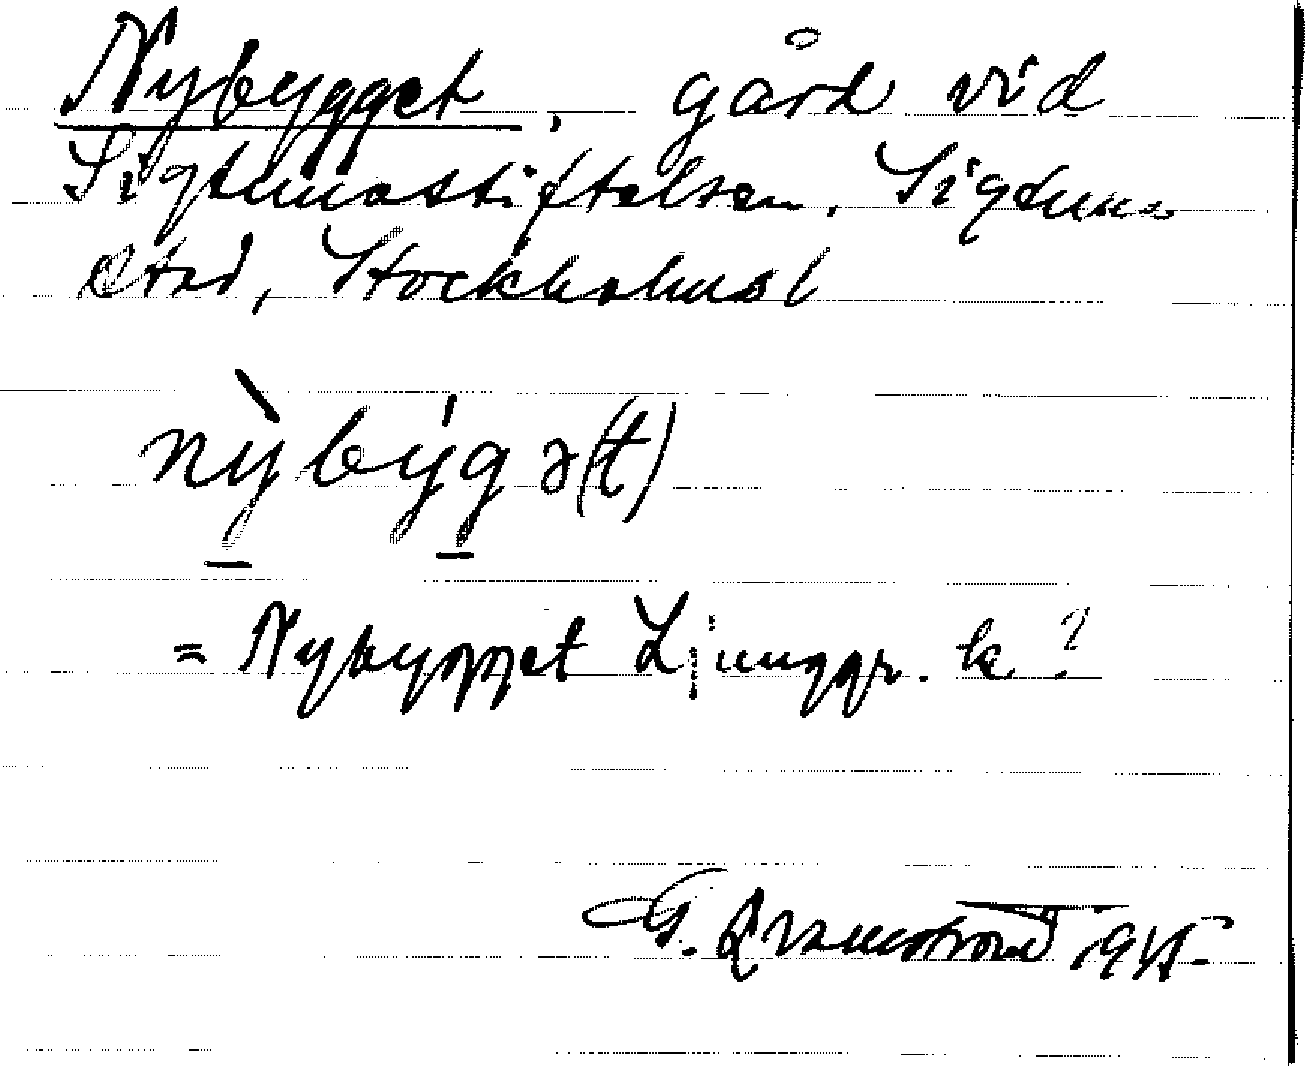 Nybygget, gård vid
Sigtunastiftelsen, Sigtuna
stad, Stockholms l
nỳbýgə(t)
= Nybygget Ljunggr. k ?
G. Kvarnström 1945